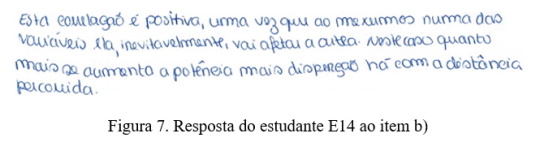 Esta correlação é positiva, uma vez que ao mexermos numa das
variáveis ela, inevitavelmente, vai afetar a outra. Neste caso quanto
mais se aumenta a potência mais disperção há com a distância
percorrida.
Figura 7. Resposta do estudante E14 ao item b)